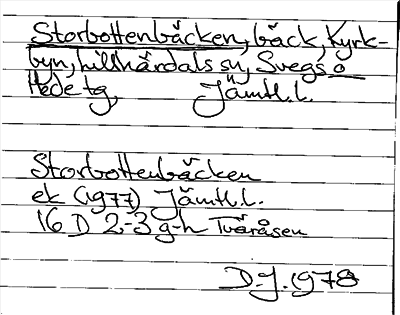 Storbottenbäcken, bäck, Kyrk-
byn, Lillhärdals sn, Svegs o
Hede tg, Jämtl.l.
Storbottenbäcken
ek (1977) Jämtl.l.
16 D 2-3 g-h Tvåråsen
D.J. 1978